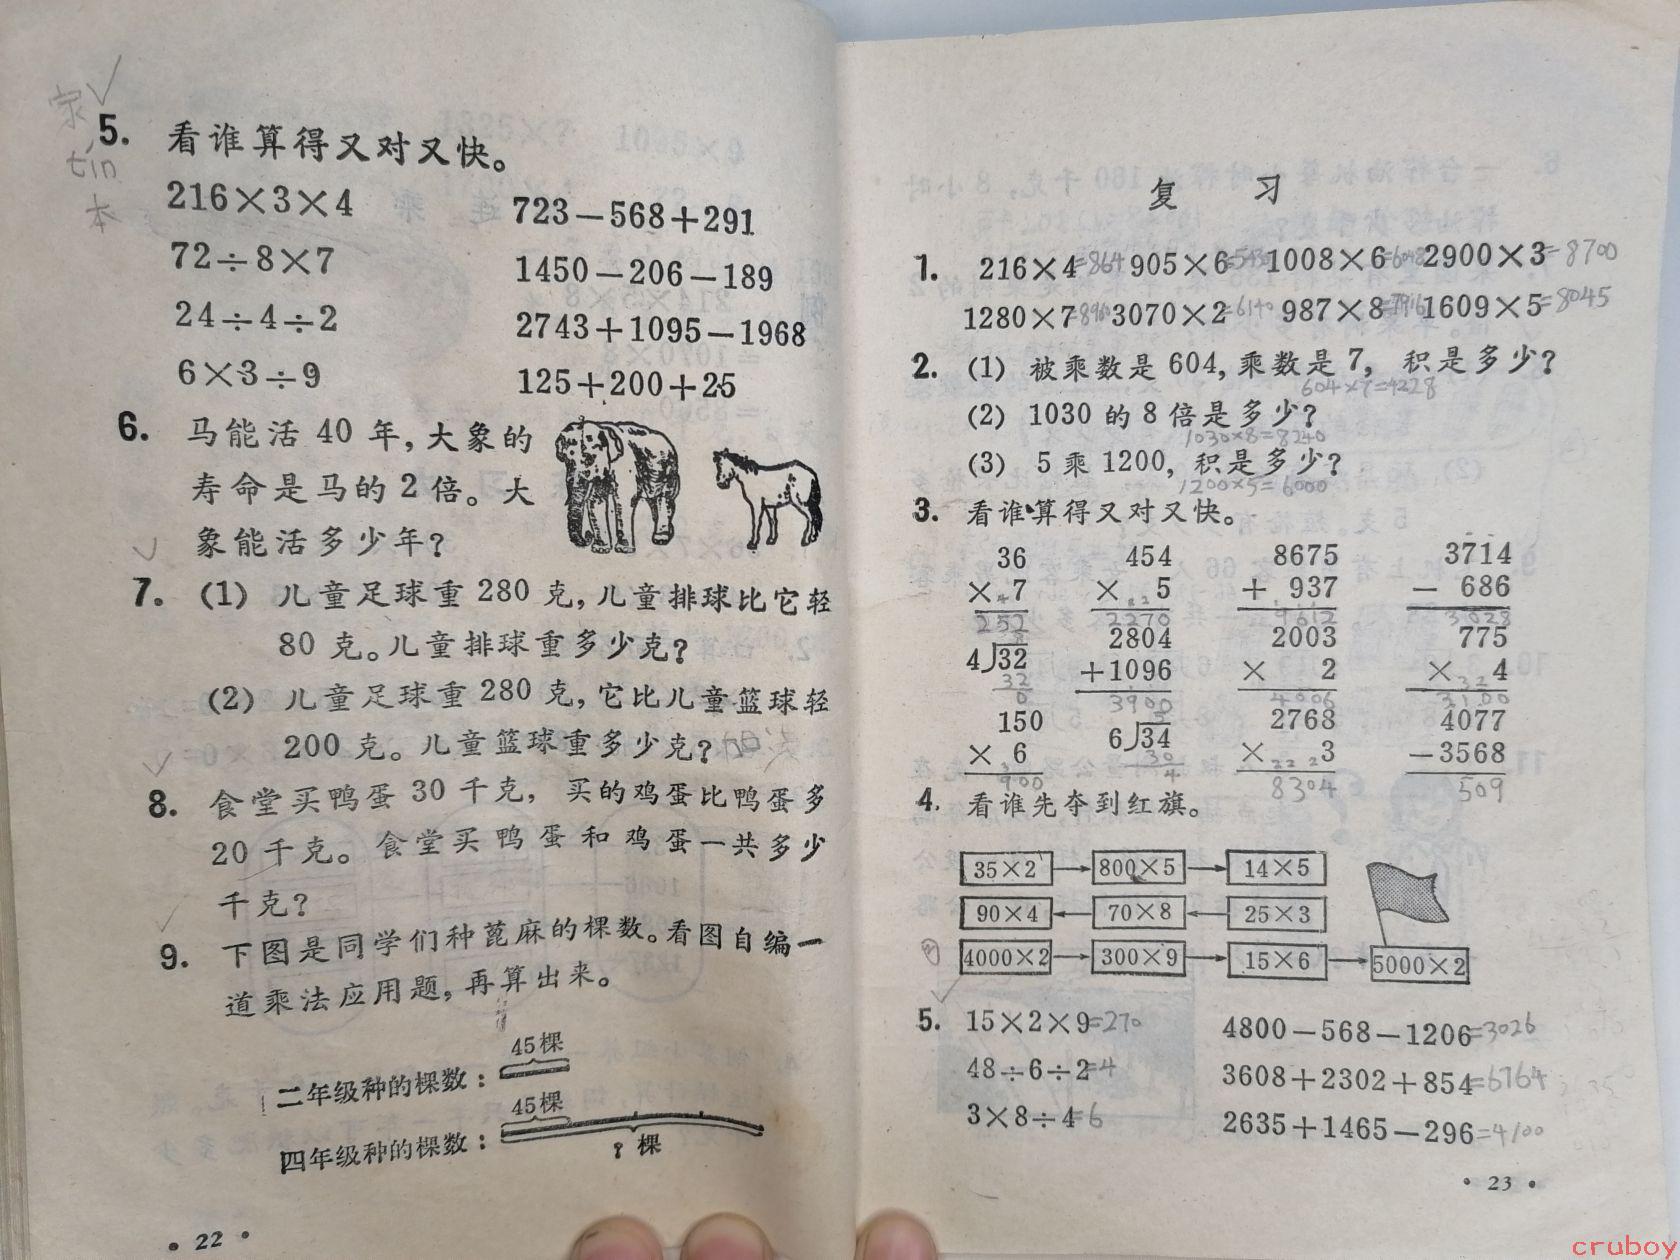 家
tin
本
5. 看谁算得又对又快。
216×3×4 723－568＋291
72÷8×7 1450－206－189
24÷4÷2 2743＋1095－1968
6×3÷9 125＋200＋25
6. 马能活 40 年，大象的
寿命是马的 2 倍。大
象能活多少年？
7. (1) 儿童足球重 280 克，儿童排球比它轻
80 克。儿童排球重多少克？
(2) 儿童足球重 280 克，它比儿童篮球轻
200 克。儿童篮球重多少克？
8. 食堂买鸭蛋 30 千克， 买的鸡蛋比鸭蛋多
20 千克。食堂买鸭蛋和鸡蛋一共多少
千克？
9. 下图是同学们种蓖麻的棵数。看图自编一
道乘法应用题，再算出来。
45棵
二年级种的棵数：
45棵
四年级种的棵数：
? 棵
• 22 •
复 习
1. 216×4=864 905×6 1008×6=6048 2900×3=8700
1280×7=8960 3070×2=6140 987×8 1609×5=8045
2. (1) 被乘数是 604，乘数是 7， 积是多少？
604×7=4228
(2) 1030 的 8 倍是多少？
1030×8=8240
(3) 5 乘 1200， 积是多少？
1200×5=6000
3. 看谁算得又对又快。
36 454 8675 3714
× 7 × 5 ＋ 937 － 686
252 2270 9612 3028
8 2804 2003 775
4)32 ＋1096 × 2 × 4
32 3900 4006 3100
0
150 5 2768 4077
× 6 6)34 × 3 －3568
900 30 8304 509
4
4. 看谁先夺到红旗。
35×2 800×5 14×5
90×4 70×8 25×3
4000×2 300×9 15×6 5000×2
5. 15×2×9=270 4800－568－1206=3026
48÷6÷2=4 3608＋2302＋854=6764
3×8÷4=6 2635＋1465－296=4100
• 23 •
cruboy